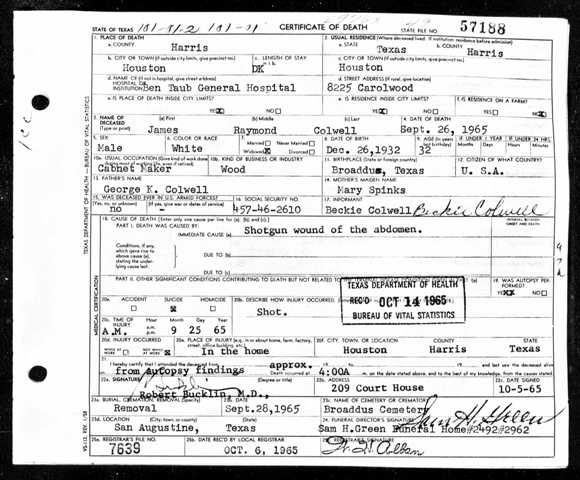 STATE OF TEXAS CERTIFICATE OF DEATH STATE FILE NO. 57188
1. PLACE OF DEATH 2. USUAL RESIDENCE (Where deceased lived. If institution: residence before admission)
a. COUNTY Harris a. STATE Texas b. COUNTY Harris
b. CITY OR TOWN (If outside city limits, give precinct no.) c. LENGTH OF STAY c. CITY OR TOWN (If outside city limits, give precinct no.)
Houston DK Houston
d. NAME OF (If not in hospital, give street address) d. STREET ADDRESS
HOSPITAL OR INSTITUTION Ben Taub General Hospital 8225 Carolwood
e. IS PLACE OF DEATH INSIDE CITY LIMITS? e. IS RESIDENCE INSIDE CITY LIMITS? f. IS RESIDENCE ON A FARM?
YES NO YES NO YES NO
3. NAME OF DECEASED (Type or print) (a) First (b) Middle (c) Last 4. DATE OF DEATH
James Raymond Colwell Sept. 26, 1965
5. SEX 6. COLOR OR RACE 7. Married Never Married Widowed Divorced 8. DATE OF BIRTH 9. AGE IF UNDER 1 YEAR IF UNDER 24 HRS.
Male White Dec. 26,1932 32
10a. USUAL OCCUPATION (Give kind of work done 10b. KIND OF BUSINESS OR INDUSTRY 11. BIRTHPLACE (State or foreign country) 12. CITIZEN OF WHAT COUNTRY?
Cabnet Maker Wood Broaddus, Texas U. S.A.
13. FATHER'S NAME 14. MOTHER'S MAIDEN NAME
George K. Colwell Mary Spinks
15. WAS DECEASED EVER IN U.S. ARMED FORCES? 16. SOCIAL SECURITY NO. 17. INFORMANT
no 457-46-2610 Beckie Colwell Beckie Colwell
18. CAUSE OF DEATH (Enter only one cause per line for (a), (b), and (c).) INTERVAL BETWEEN ONSET AND DEATH
PART I. DEATH WAS CAUSED BY:
IMMEDIATE CAUSE (a) Shotgun wound of the abdomen.
Conditions, if any, which gave rise to above cause (a), stating the underlying cause last. DUE TO (b)
DUE TO (c)
PART II. OTHER SIGNIFICANT CONDITIONS CONTRIBUTING TO DEATH BUT NOT RELATED 19. WAS AUTOPSY PERFORMED?
YES NO
TEXAS DEPARTMENT OF HEALTH
REC'D OCT 14 1965
BUREAU OF VITAL STATISTICS
20a. ACCIDENT SUICIDE HOMICIDE 20b. DESCRIBE HOW INJURY OCCURRED.
Shot.
20c. TIME OF INJURY Hour Month Day Year
A.M. a.m. p.m. 9 25 65
20d. INJURY OCCURRED 20e. PLACE OF INJURY (e.g. in or about home, farm, factory, street, office building, etc.) 20f. CITY, TOWN, OR LOCATION COUNTY STATE
WHILE AT WORK NOT WHILE AT WORK In the home Houston Harris Texas
21. I hereby certify that I attended the deceased from approx.
from Autopsy findings Death occurred at 4:00A m. on the date stated above, and to the best of my knowledge, from the causes stated.
22a. SIGNATURE 22b. ADDRESS 22c. DATE SIGNED
Robert Bucklin, M.D., 209 Court House 10-5-65
23a. BURIAL, CREMATION, REMOVAL (Specify) 23b. DATE 23c. NAME OF CEMETERY OR CREMATORY
Removal Sept.28,1965 Broaddus Cemetery
23d. LOCATION (City, town, or county) (State) 24. FUNERAL DIRECTOR'S SIGNATURE
San Augustine, Texas Sam H.Green Funeral Home#2492#2962 Sam H. Green
25a. REGISTRAR'S FILE NO. 25b. DATE REC'D BY LOCAL REGISTRAR 25c. REGISTRAR'S SIGNATURE
7639 OCT. 6, 1965
TEXAS DEPARTMENT OF HEALTH — BUREAU OF VITAL STATISTICS
MEDICAL CERTIFICATION